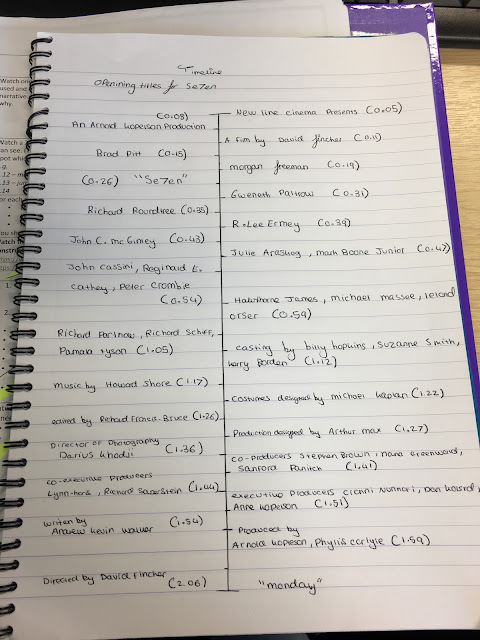 Timeline
Openining titles for Se7en
(0.08)
An Arnold Kopelson Production
New line cinema Presents (0.05)
A film by David fincher (0.11)
Brad Pitt (0.15)
morgan freeman (0.19)
(0.26) "Se7en"
Gweneth Paltrow (0.31)
Richard Roundtree (0.35)
R. Lee Ermey (0.39)
John C. mc Gimey (0.43)
Julie Araskog, mark Boone Junior (0.47)
John Cassini, Reginald E.
Cathey, Peter Crombie
(0.54)
Hawthorne James, michael massee, leland
orser (0.59)
Richard Portnow, Richard Schiff,
Pamala tyson (1.05)
casting by billy hopkins, Suzanne Smith,
kerry Borden (1.12)
music by Howard Shore (1.17)
Costumes designed by michael kaplan (1.22)
edited by Richard Francis-Bruce (1.26)
Production designed by Arthur max (1.27)
Director of Photography
Darius khodji (1.36)
co-Producers Stephen Brown, nana Greenward,
Sanford Panitch (1.41)
co-executive Producers
Lynn (1.44)
executive Producers Gianni Nunnari, Dan
Anne Kopelson (1.51)
written by
Andrew kevin walker (1.54)
Produced by
Arnold kopelson, Phyllis carlyle (1.59)
Directed by David Fincher (2.06)
"monday"
Watch
used and
narrative
why.